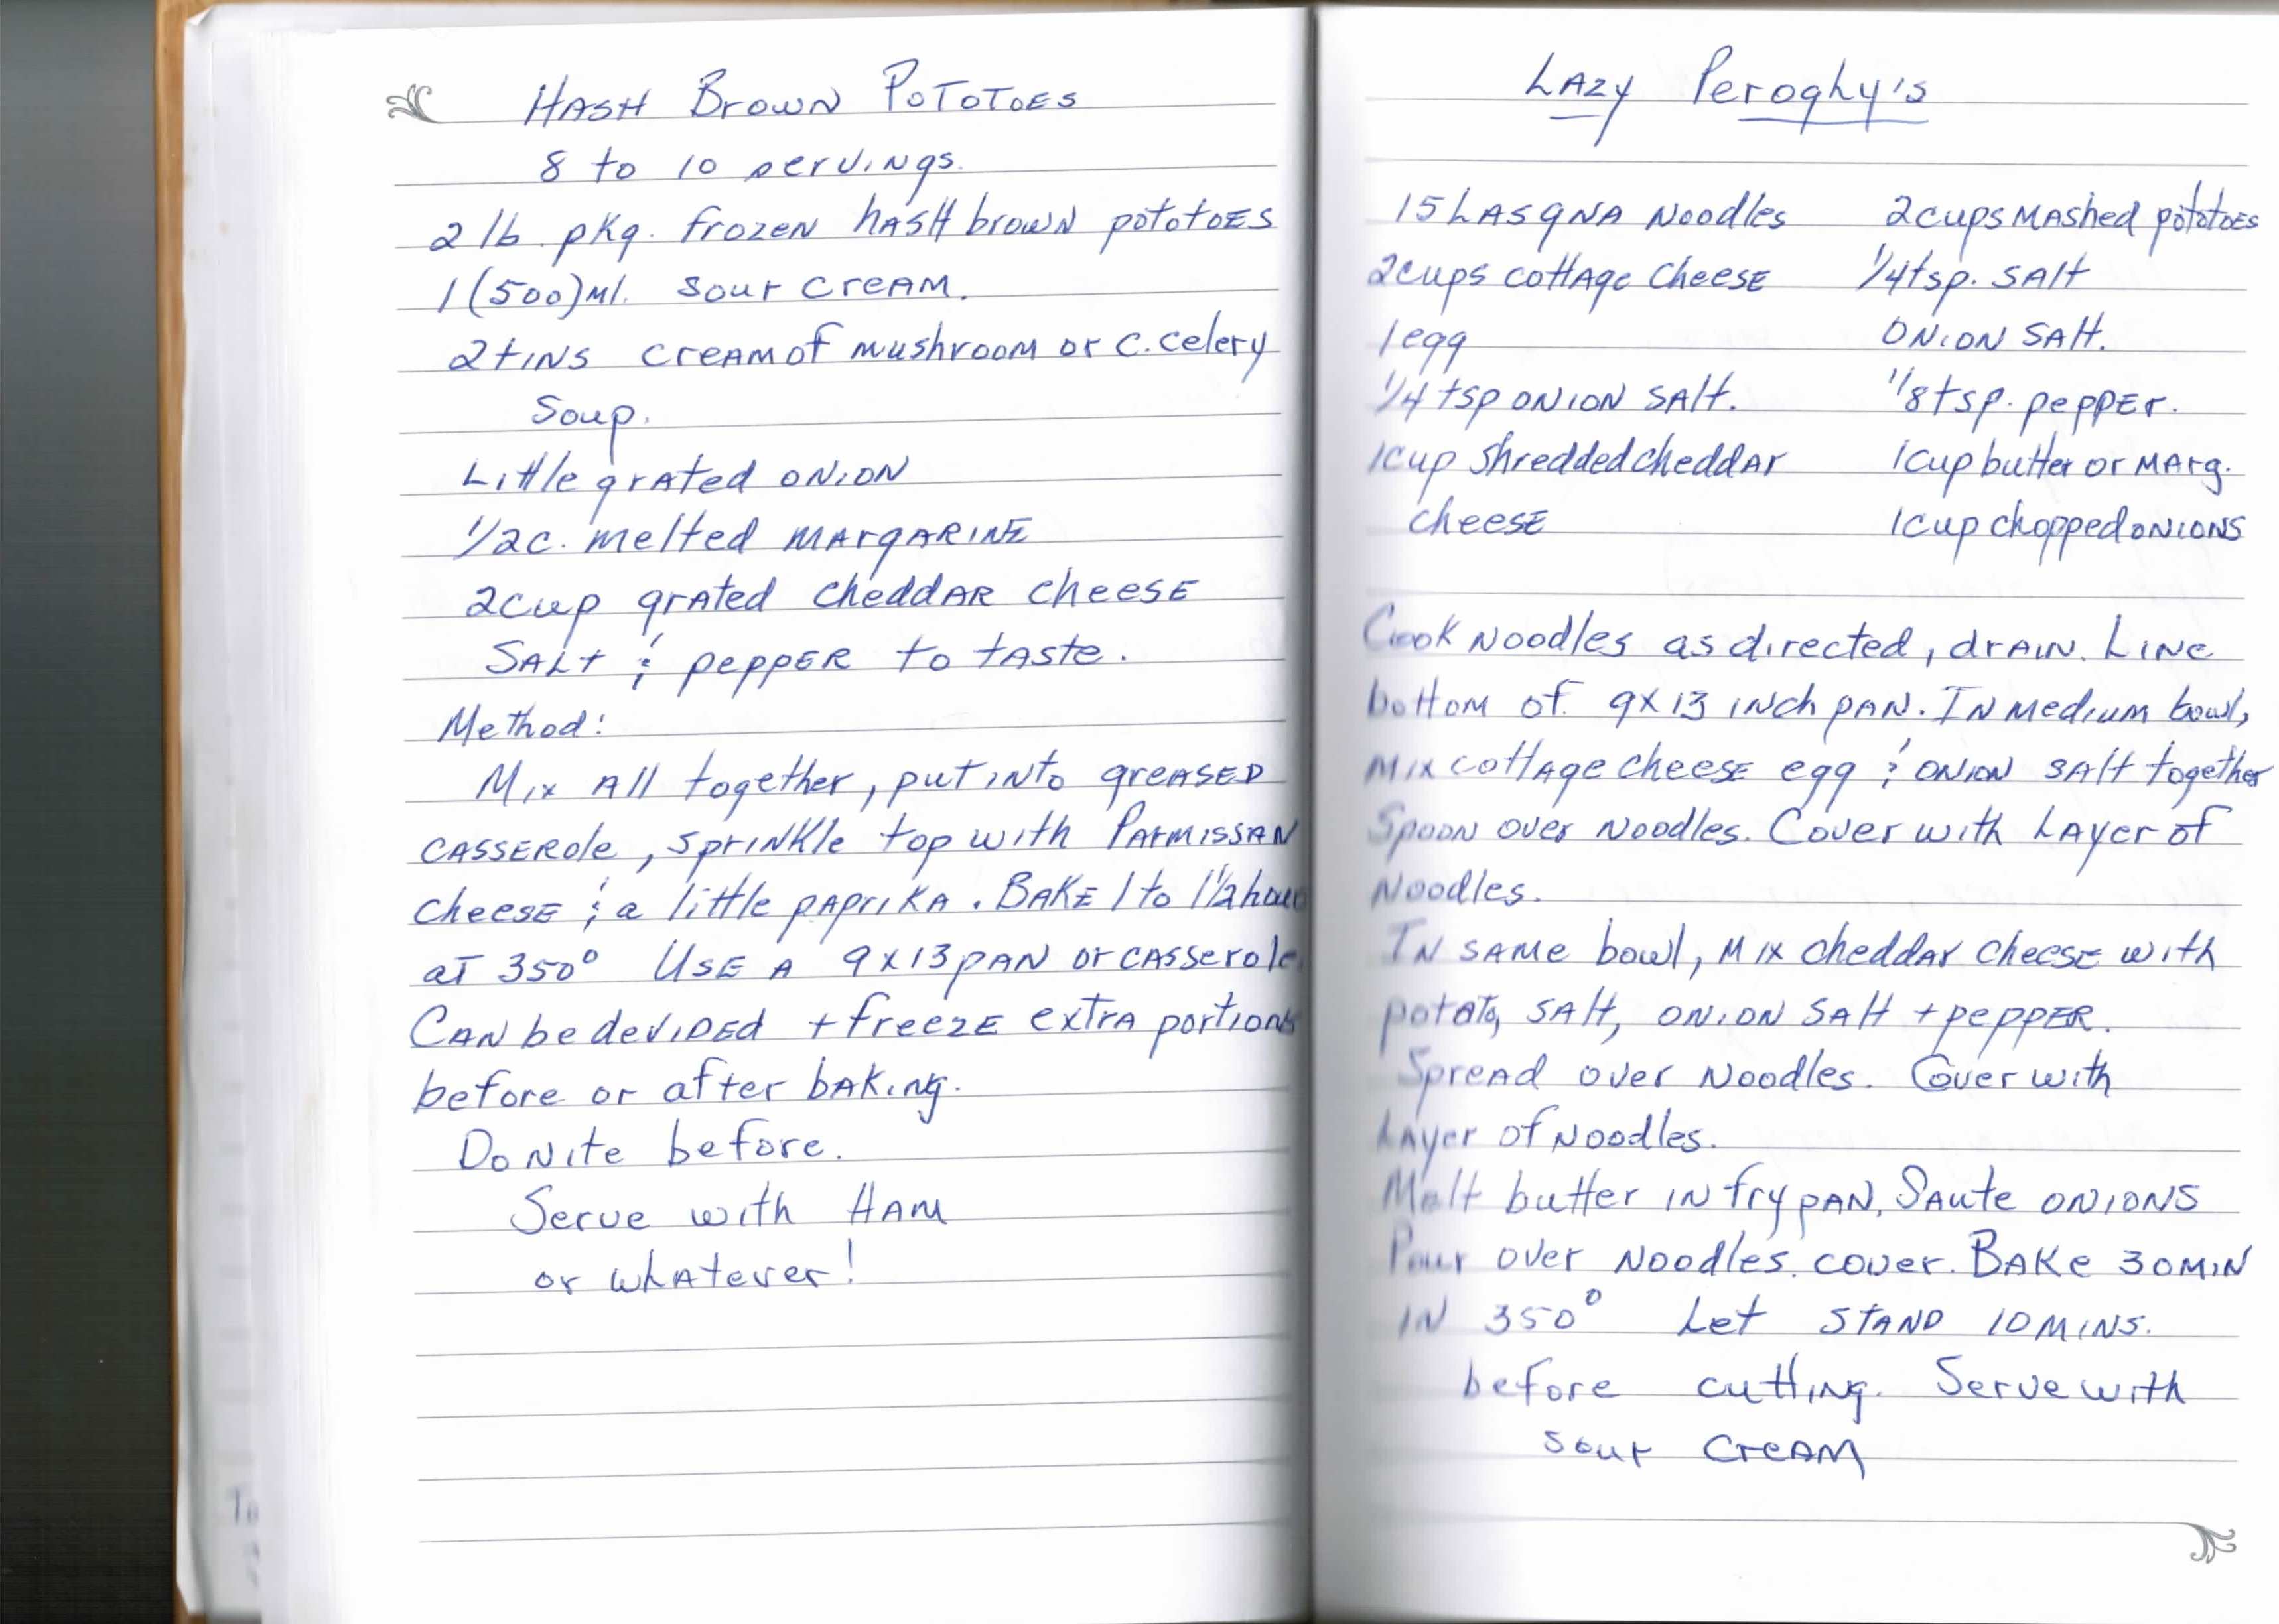 HASH BROWN POTOTOES
8 to 10 servings.
2 lb. pkg. frozen hash brown pototoes
1 (500) ml. sour cream.
2 tins cream of mushroom or c. celery
soup.
Little grated onion
1/2 c. melted margarine
2 cup grated cheddar cheese
Salt & pepper to taste.
Method:
Mix all together, put into greased
casserole, sprinkle top with Parmissan
cheese & a little paprika. Bake 1 to 1 1/2 hours
at 350° Use a 9 x 13 pan or casserole.
Can be devided + freeze extra portions
before or after baking.
Do nite before.
Serve with Ham
or whatever!
Lazy Peroghy's
15 Lasgna Noodles 2 cups mashed pototoes
2 cups cottage cheese 1/4 tsp. salt
1 egg onion salt.
1/4 tsp onion salt. 1/8 tsp. pepper.
1 cup shredded cheddar 1 cup butter or marg.
cheese 1 cup chopped onions
Cook noodles as directed, drain. Line
bottom of 9 x 13 inch pan. In medium bowl,
mix cottage cheese egg & onion salt together
Spoon over noodles. Cover with Layer of
Noodles.
In same bowl, mix cheddar cheese with
potato, salt, onion salt + pepper.
Spread over noodles. Cover with
Layer of noodles.
Melt butter in fry pan, Saute onions
Pour over noodles. cover. Bake 30 min
in 350° Let stand 10 mins.
before cutting. Serve with
sour cream
To